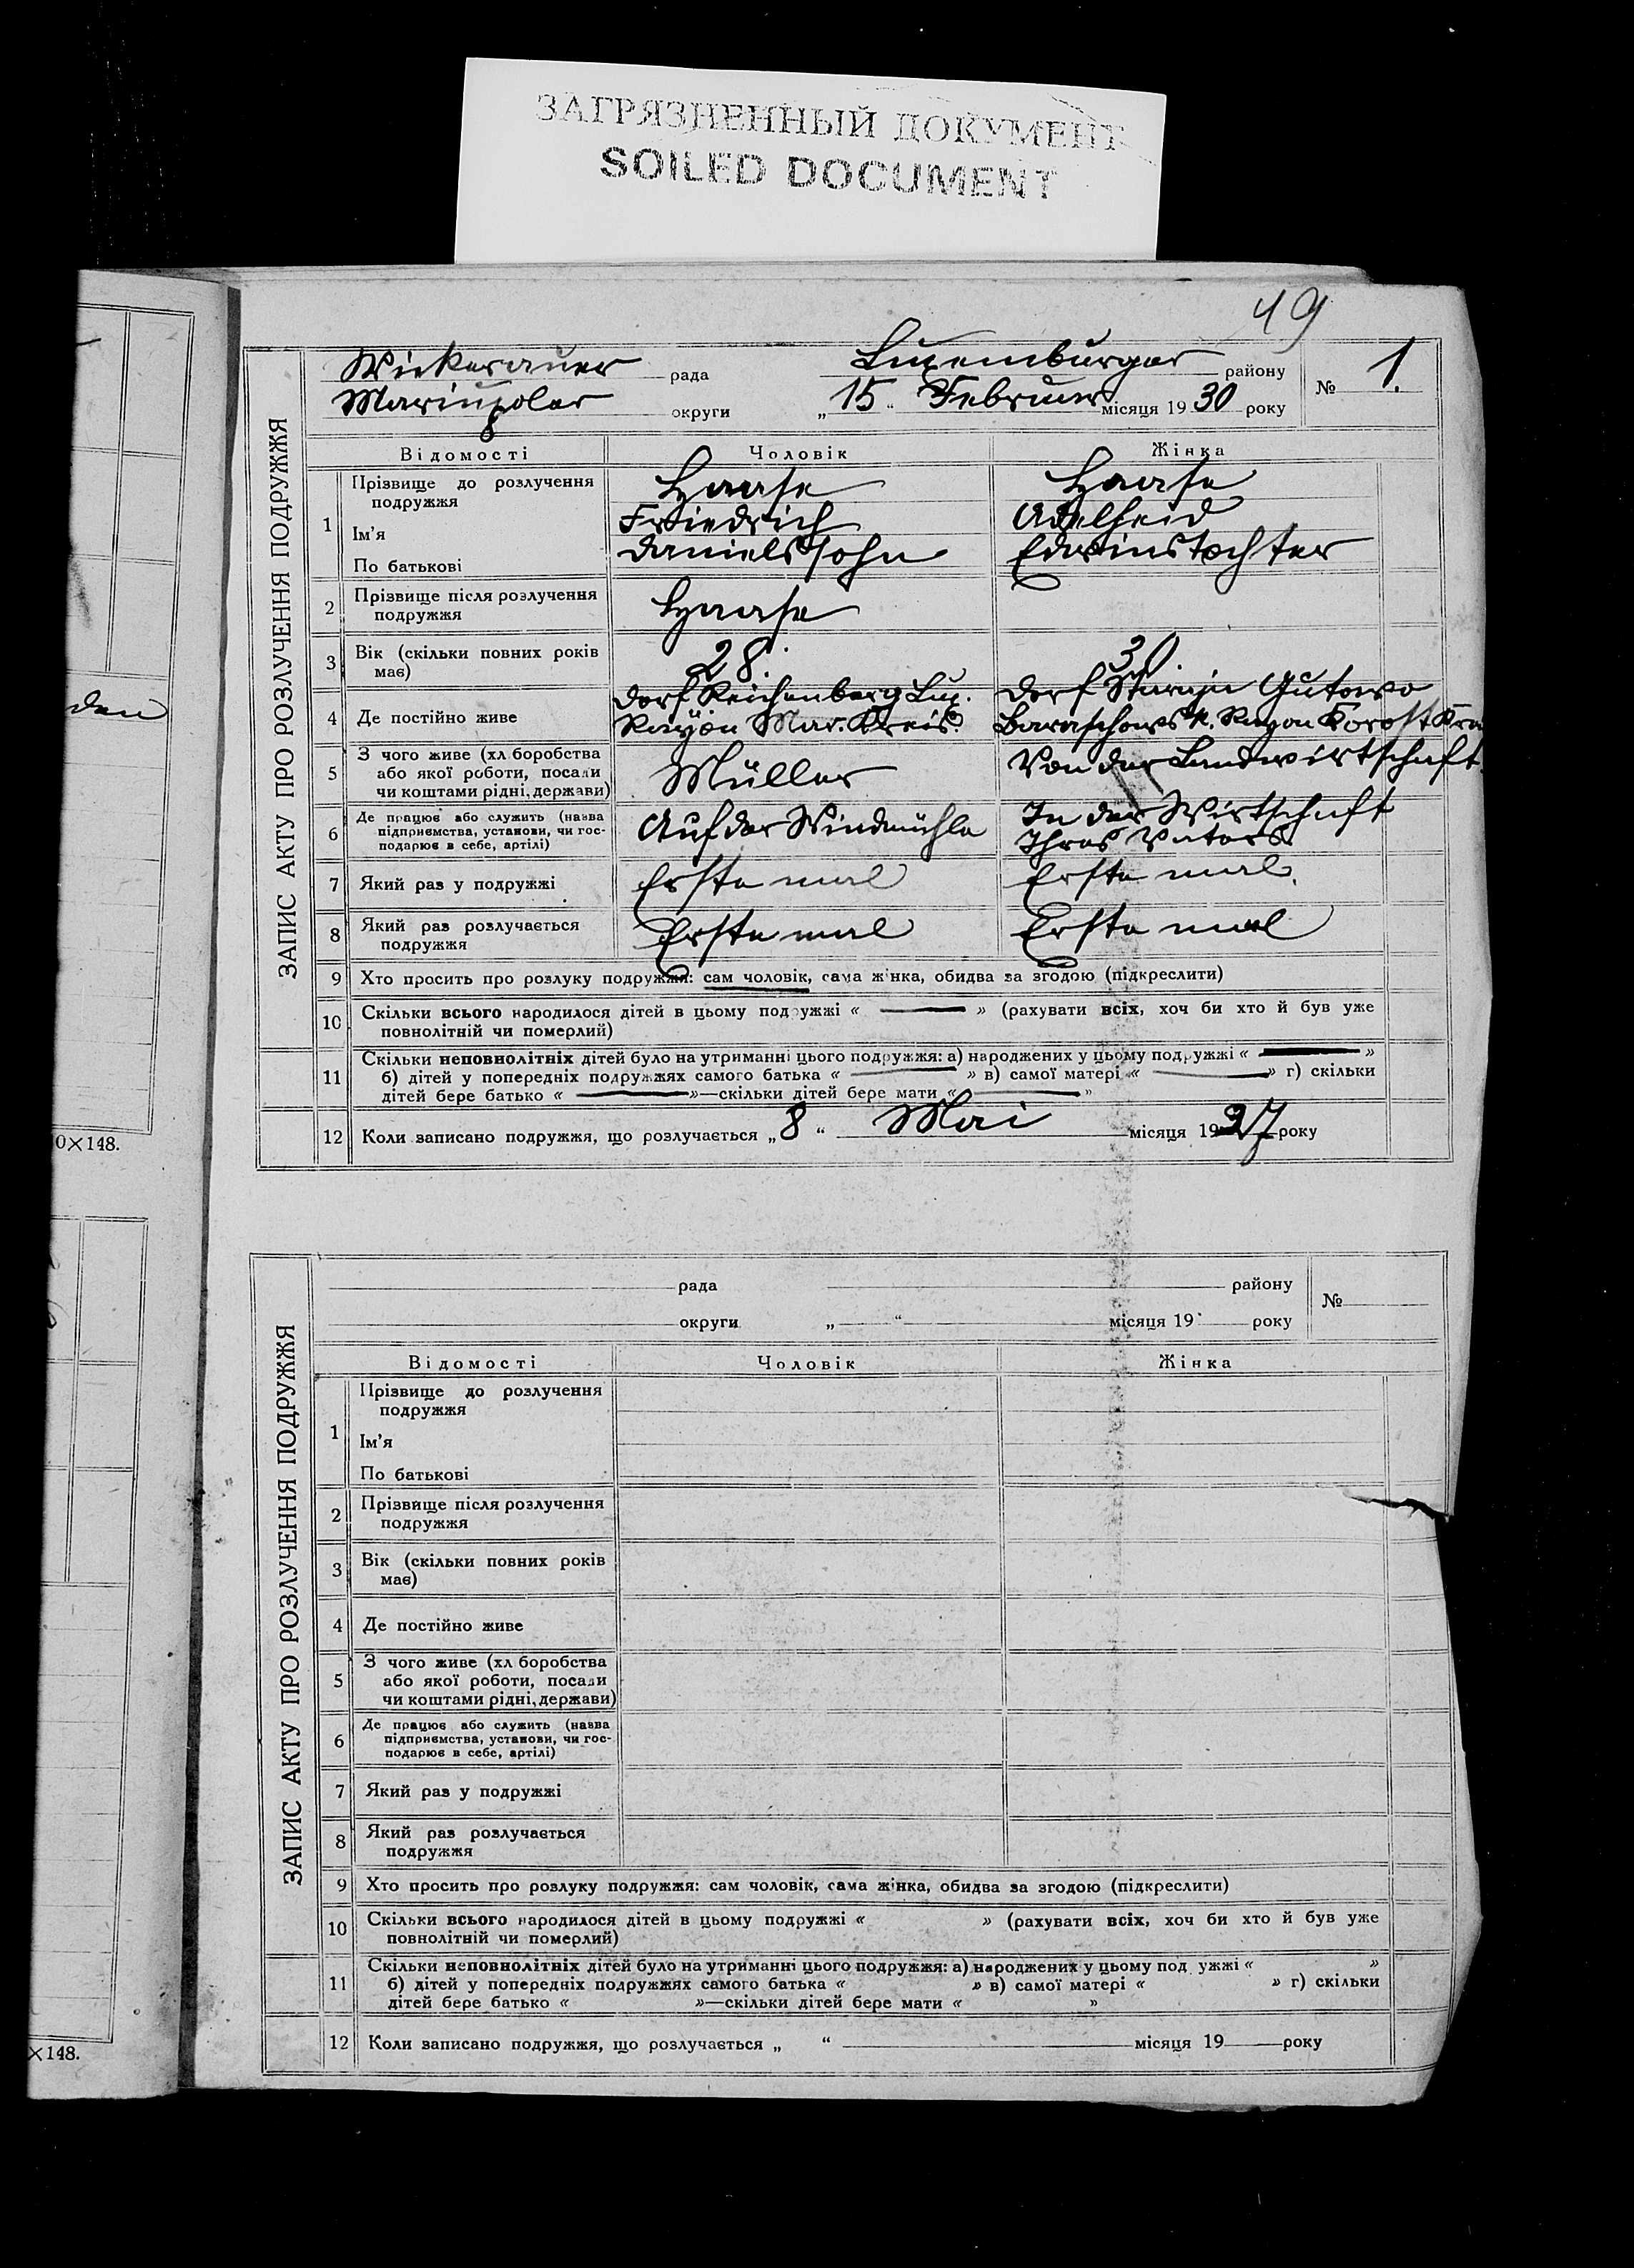 ЗАГРЯЗНЕННЫЙ ДОКУМЕНТ
SOILED DOCUMENT
49
den
0×148.
×148.
ЗАПИС АКТУ ПРО РОЗЛУЧЕННЯ ПОДРУЖЖЯ
Wickerauer рада Luxemburger району № 1.
Mariupoler округи „15“ Februar місяця 1930 року
Відомості Чоловік Жінка
1 Прізвище до розлучення подружжя Haase Haase
Ім'я Friedrich Adelheid
По батькові Danielssohn Edwinstochter
2 Прізвище після розлучення подружжя Haase
3 Вік (скільки повних років має) 28. 30.
4 Де постійно живе Dorf Reichenberg Lux. Dorf Gutowo
Rayon Mar. Kreis. Rayon
5 З чого живе (хліборобства або якої роботи, посади чи коштами рідні, держави) Müller Von der Landwirtschaft.
6 Де працює або служить (назва підприємства, установи, чи господарює в себе, артілі) Auf der Windmühle In der Wirtschaft
Ihres Vaters.
7 Який раз у подружжі Erste mal Erste mal.
8 Який раз розлучається подружжя Erste mal Erste mal
9 Хто просить про розлуку подружжя: сам чоловік, сама жінка, обидва за згодою (підкреслити)
10 Скільки всього народилося дітей в цьому подружжі « — » (рахувати всіх, хоч би хто й був уже
повнолітній чи померлий)
11 Скільки неповнолітніх дітей було на утриманні цього подружжя: а) народжених у цьому подружжі « — »
б) дітей у попередніх подружжях самого батька « — » в) самої матері « — » г) скільки
дітей бере батько « — »—скільки дітей бере мати « — »
12 Коли записано подружжя, що розлучається „8“ Mai місяця 1927 року
ЗАПИС АКТУ ПРО РОЗЛУЧЕННЯ ПОДРУЖЖЯ
рада району №
округи „ “ місяця 19 року
Відомості Чоловік Жінка
1 Прізвище до розлучення
подружжя
Ім'я
По батькові
2 Прізвище після розлучення
подружжя
3 Вік (скільки повних років
має)
4 Де постійно живе
5 З чого живе (хліборобства
або якої роботи, посади
чи коштами рідні, держави)
6 Де працює або служить (назва
підприємства, установи, чи гос-
подарює в себе, артілі)
7 Який раз у подружжі
8 Який раз розлучається
подружжя
9 Хто просить про розлуку подружжя: сам чоловік, сама жінка, обидва за згодою (підкреслити)
10 Скільки всього народилося дітей в цьому подружжі « » (рахувати всіх, хоч би хто й був уже
повнолітній чи померлий)
11 Скільки неповнолітніх дітей було на утриманні цього подружжя: а) народжених у цьому подружжі « »
б) дітей у попередніх подружжях самого батька « » в) самої матері « » г) скільки
дітей бере батько « »—скільки дітей бере мати « »
12 Коли записано подружжя, що розлучається „ “ місяця 19 року